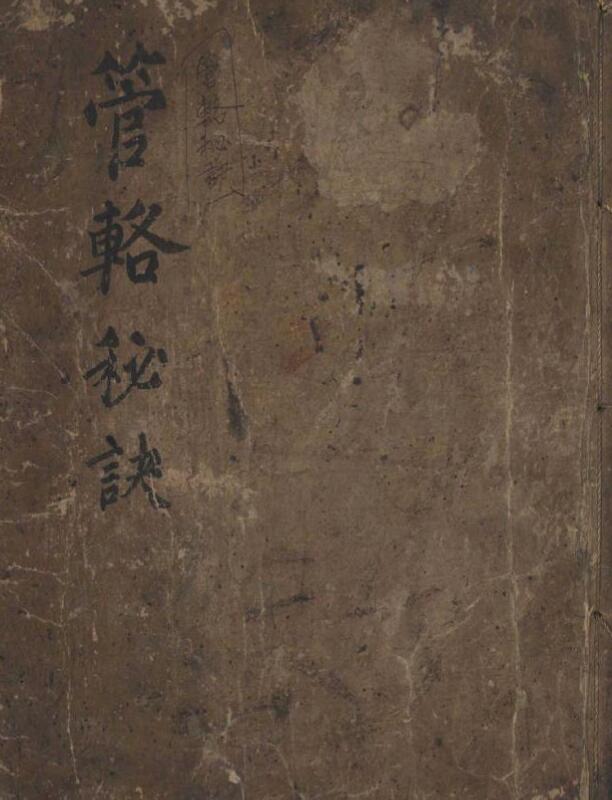 管輅秘訣
管輅秘訣